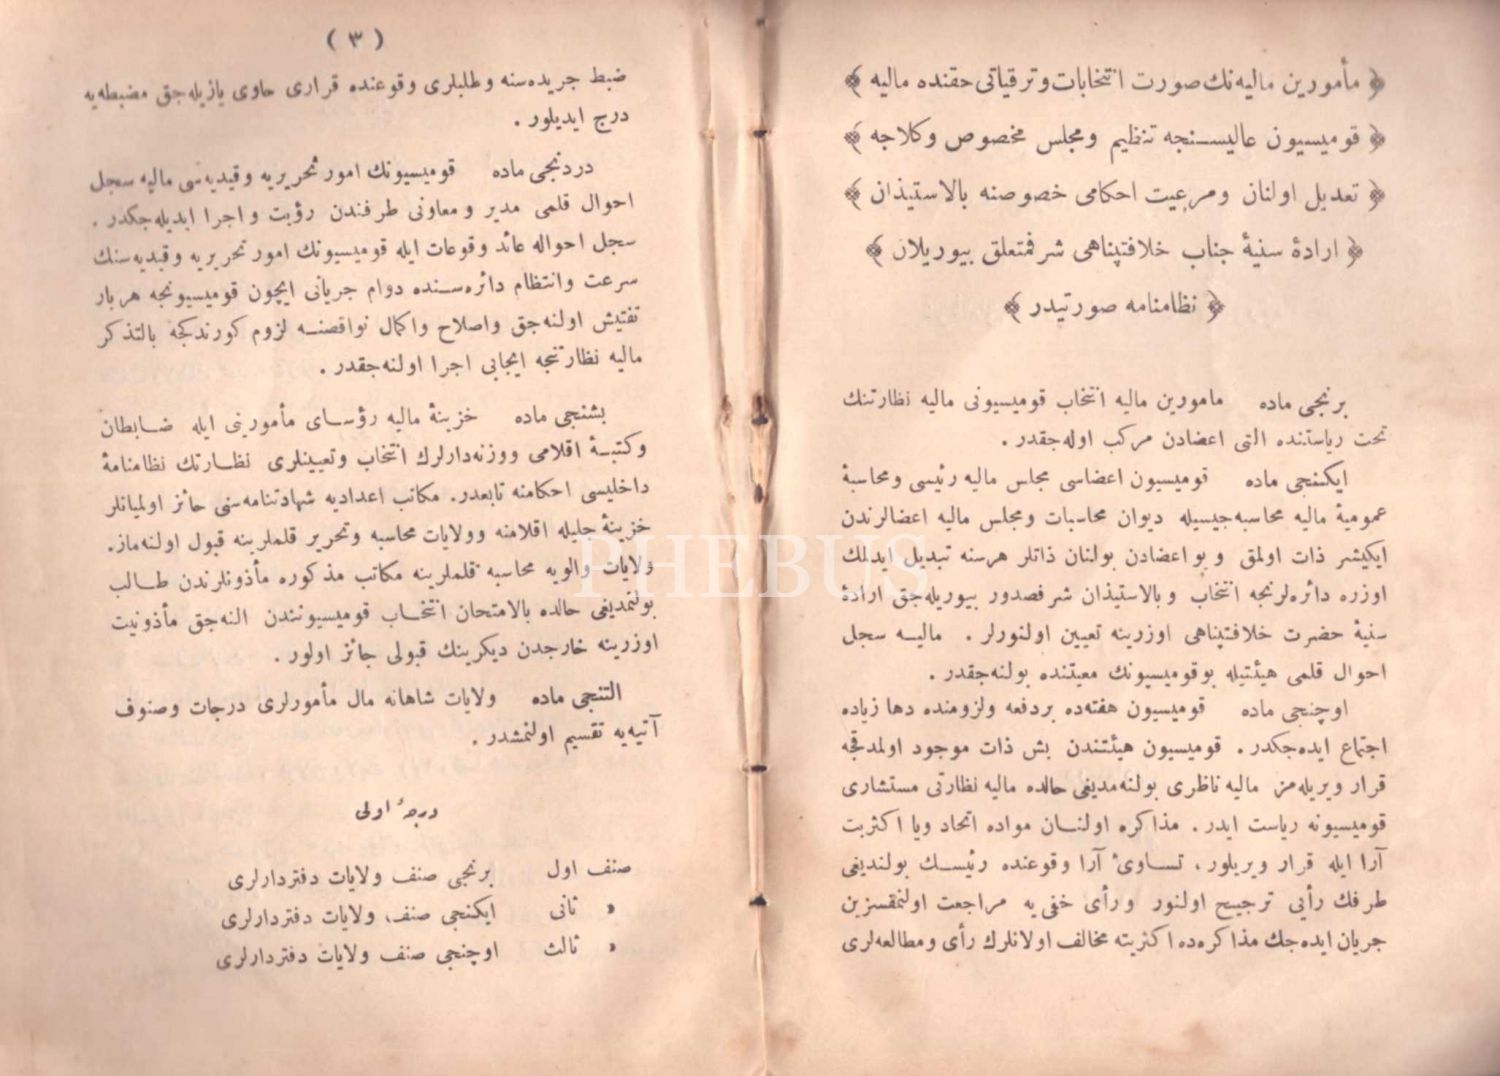 ﴿ مأمورین مالیه‌نك صورت انتخابات و ترقیاتی حقنده مالیه ﴾
﴿ قومیسیون عالیسنجه تنظیم و مجلس مخصوص وكلاجه ﴾
﴿ تعدیل اولنان و مرعیت احكامی خصوصنه بالاستیذان ﴾
﴿ ارادهٔ سنیهٔ جناب خلافتپناهی شرفمتعلق بیوریلان ﴾
﴿ نظامنامه صورتیدر ﴾
برنجی ماده مامورین مالیه انتخاب قومیسیونی مالیه نظارتنك
تحت ریاستنده التی اعضادن مركب اوله‌جقدر .
ایكنجی ماده قومیسیون اعضاسی مجلس مالیه رئیسی و محاسبهٔ
عمومیهٔ مالیه محاسبه‌جیسیله دیوان محاسبات و مجلس مالیه اعضالرندن
ایكیشر ذات اولمق و بو اعضادن بولنان ذاتلر هرسنه تبدیل ایدلمك
اوزره دائره‌لرنجه انتخاب و بالاستیذان شرفصدور بیوریله‌جق ارادهٔ
سنیهٔ حضرت خلافتپناهی اوزرینه تعیین اولنورلر . مالیه سجل
احوال قلمی هیئتیله بوقومیسیونك معیتنده بولنه‌جقدر .
اوچنجی ماده قومیسیون هفته‌ده بردفعه ولزومنده دها زیاده
اجتماع ایده‌جكدر . قومیسیون هیئتندن بش ذات موجود اولمدقجه
قرار ویریله‌مز مالیه ناظری بولنه‌مدیغی حالده مالیه نظارتی مستشاری
قومیسیونه ریاست ایدر . مذاكره اولنان مواده اتحاد ویا اكثریت
آرا ایله قرار ویریلور ، تساوئ آرا وقوعنده رئیسك بولندیغی
طرفك رأیی ترجیح اولنور و رأی خفی‌یه مراجعت اولنمقسزین
جریان ایده‌جك مذاكره‌ده اكثریته مخالف اولانلرك رأی و مطالعه‌لری
( ٣ )
ضبط جریده‌سنه و طلبلری وقوعنده قراری حاوی یازیله‌جق مضبطه‌یه
درج ایدیلور .
دردنجی ماده قومیسیونك امور تحریریه و قیدیه‌سی مالیه سجل
احوال قلمی مدیر و معاونی طرفندن رؤیت و اجرا ایدیله‌جكدر .
سجل احواله عائد وقوعات ایله قومیسیونك امور تحریریه و قیدیه‌سنك
سرعت و انتظام دائره‌سنده دوام جریانی ایچون قومیسیونجه هربار
تفتیش اولنه‌جق و اصلاح و اكمال نواقصنه لزوم كورندكجه بالتذكر
مالیه نظارتنجه ایجابی اجرا اولنه‌جقدر .
بشنجی ماده خزینهٔ مالیه رؤسای مأمورینی ایله ضابطان
و كتبهٔ اقلامی و وزنه‌دارلرك انتخاب و تعیینلری نظارتك نظامنامهٔ
داخلیسی احكامنه تابعدر. مكاتب اعدادیه شهادتنامه‌سنی حائز اولمیانلر
خزینهٔ جلیله اقلامنه و ولایات محاسبه و تحریر قلملرینه قبول اولنه‌ماز.
ولایات و الویه محاسبه قلملرینه مكاتب مذكوره مأذونلرندن طالب
بولنمدیغی حالده بالامتحان انتخاب قومیسیونندن النه‌جق مأذونیت
اوزرینه خارجدن دیكرینك قبولی جائز اولور .
التنجی ماده ولایات شاهانه مال مأمورلری درجات و صنوف
آتیه‌یه تقسیم اولنمشدر .
درجهٔ اولی
صنف اول برنجی صنف ولایات دفتردارلری
» ثانی ایكنجی صنف ولایات دفتردارلری
» ثالث اوچنجی صنف ولایات دفتردارلری
PHEBUS